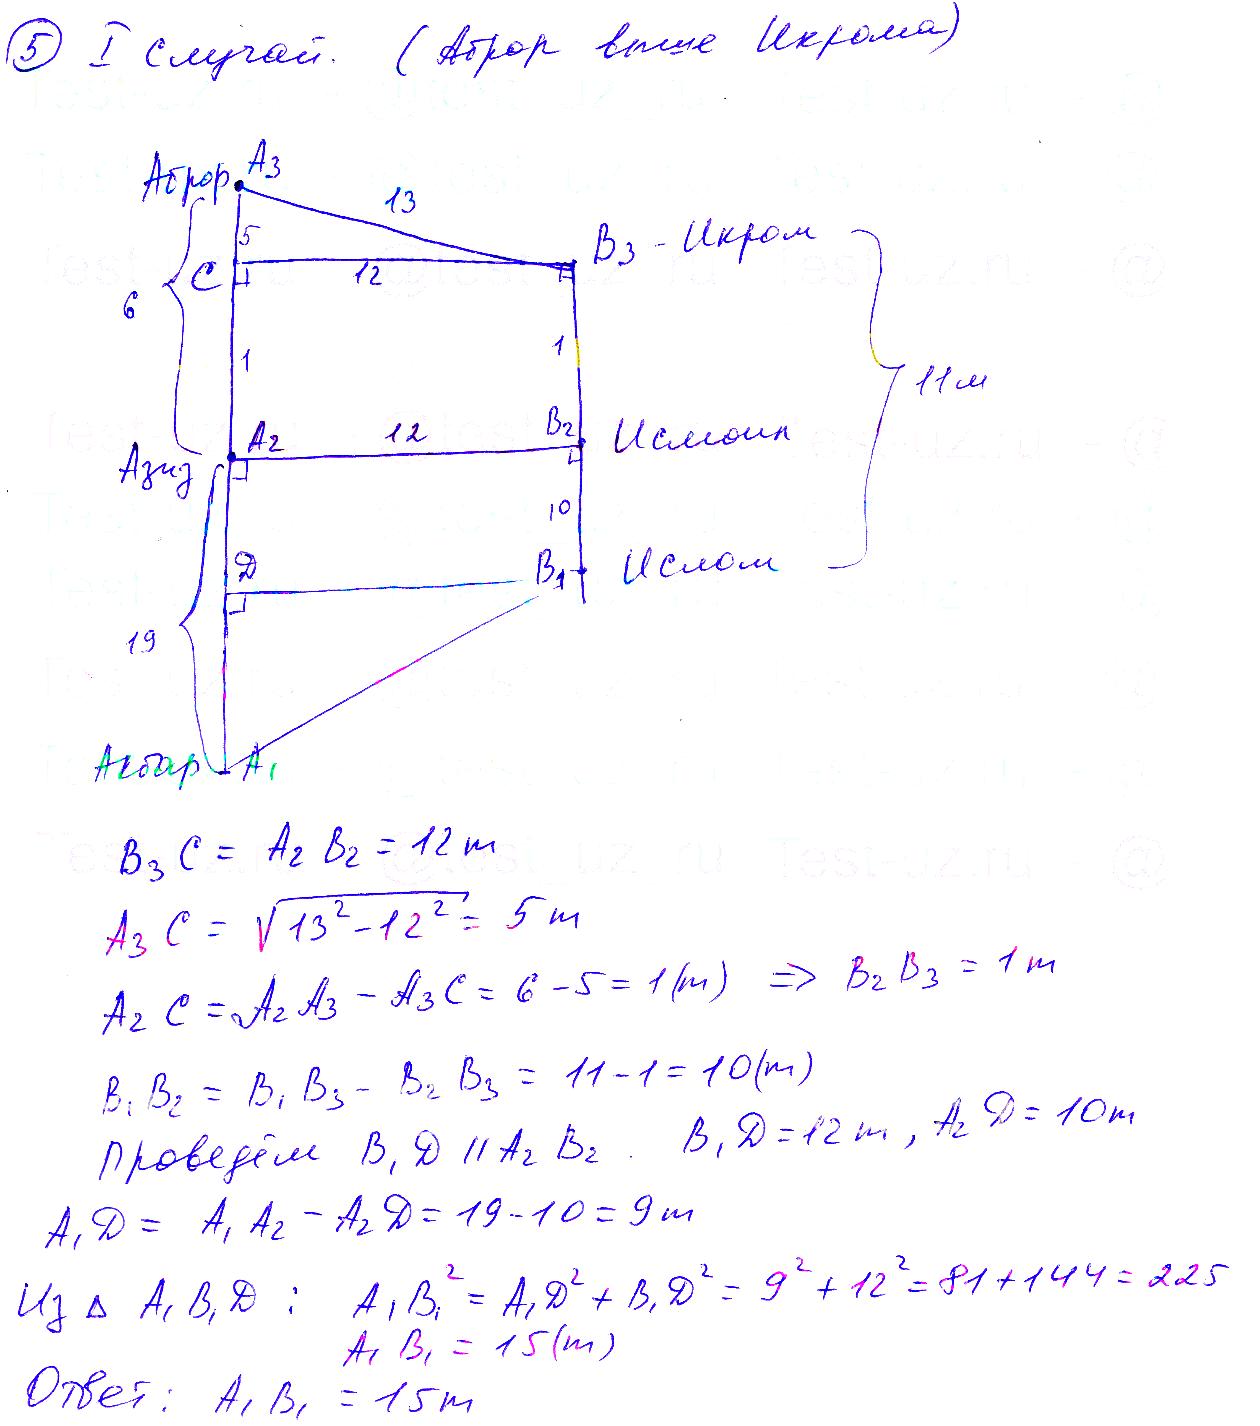 ⑤ I случай. (Аброр выше Икрома)
Аброр A3
13
5
B3 - Икром
C
12
6
1
1
11м
A2
12
B2
Исмоил
Азиз
10
Д
B1
Ислом
19
Акбар A1
B3 C = A2 B2 = 12 m
A3 C = √13² - 12² = 5 m
A2 C = A2 A3 - A3 C = 6 - 5 = 1(m) => B2 B3 = 1 m
B1 B2 = B1 B3 - B2 B3 = 11 - 1 = 10(m)
Проведём B1 Д || A2 B2. B1 Д = 12 m, A2 Д = 10 m
A1 Д = A1 A2 - A2 Д = 19 - 10 = 9 m
Из Δ A1 B1 Д : A1 B1² = A1 Д² + B1 Д² = 9² + 12² = 81 + 144 = 225
A1 B1 = 15(m)
Ответ: A1 B1 = 15 m